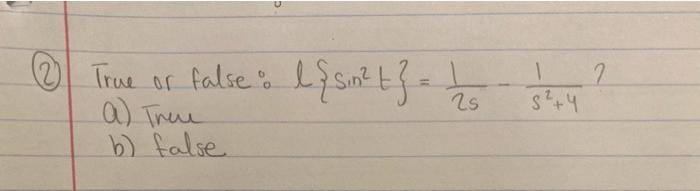 ② True or false: L{sin² t} = 1/2s - 1/s²+4 ?
a) True
b) false